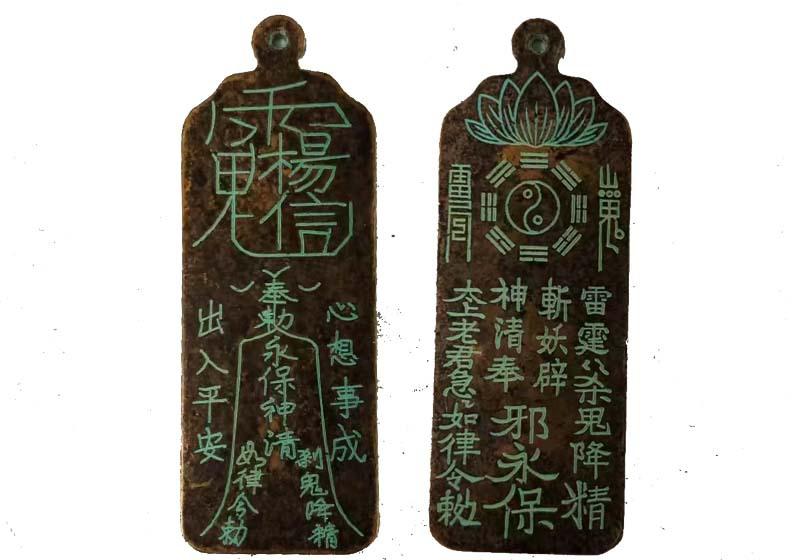 楊信
心想事成
奉勅永保神清
出入平安
刹鬼降精
如律令勅
雷霆〻杀鬼降精
斬妖辟邪永保
神清奉
太上老君急〻如律令勅